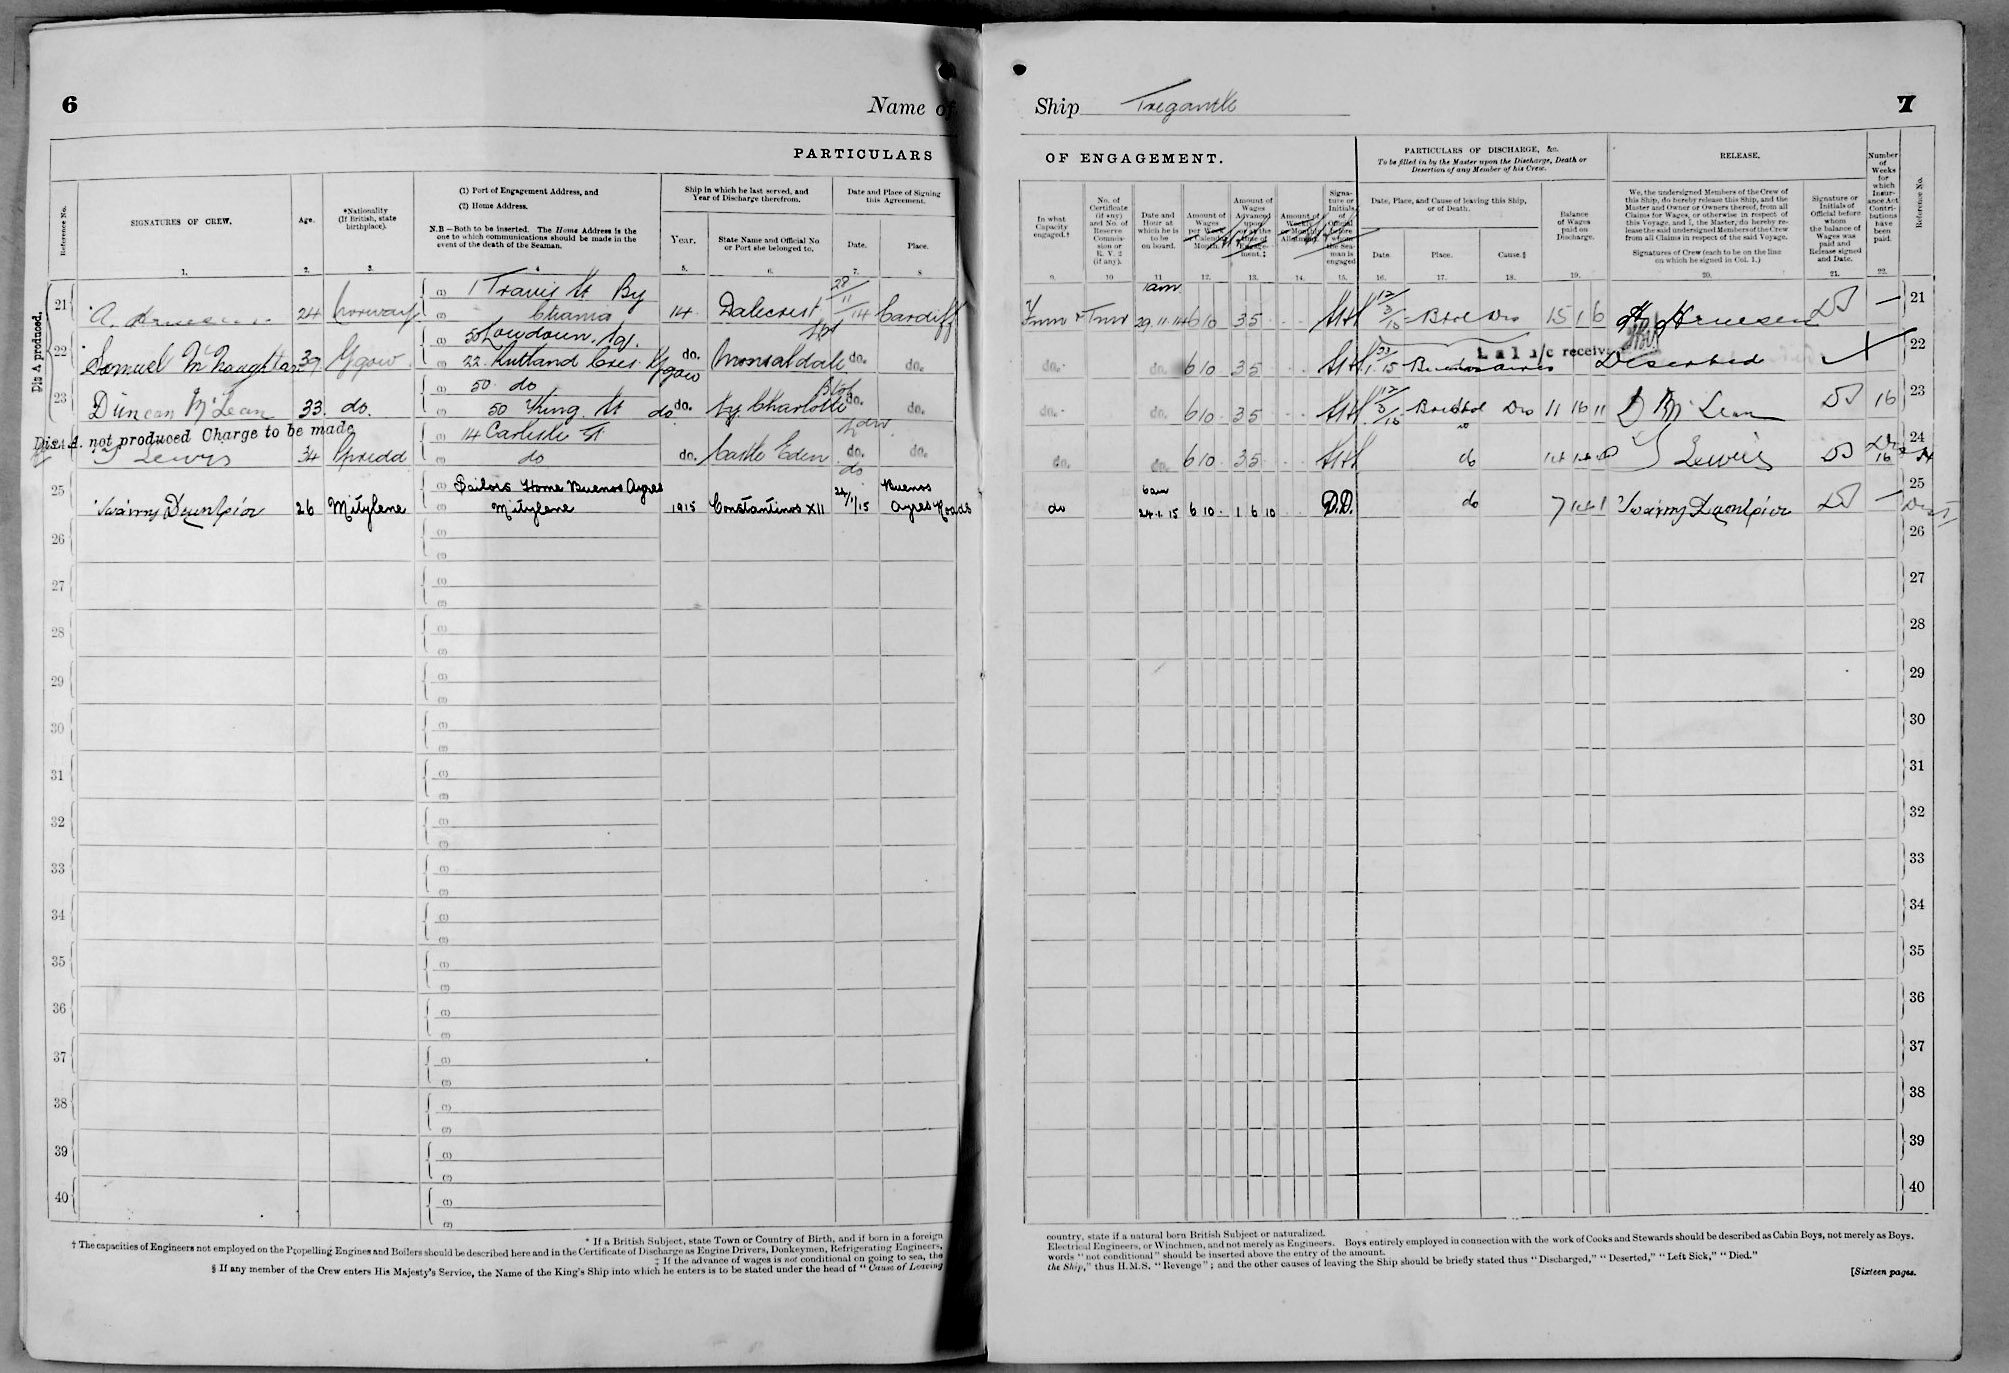 6
Name of
PARTICULARS
Reference No.
SIGNATURES OF CREW.
Age.
*Nationality (If British, state birthplace).
(1) Port of Engagement Address, and
(2) Home Address.
N.B.—Both to be inserted. The Home Address is the one to which communications should be made in the event of the death of the Seaman.
Ship in which he last served, and Year of Discharge therefrom.
Year.
State Name and Official No. or Port she belonged to.
Date and Place of Signing this Agreement.
Date.
Place.
1. 2. 3. 4 5. 6. 7. 8
Dis A produced.
21 A. 24 Norway 1 Travis St By 14 Dalecrest 28/11/14 Cardiff
22 Samuel McNaughtan 39 Ggow 50 Loudoun Sq. 22 Rutland Cres Ggow do. Monsaldale do. do.
23 Duncan McLean 33. do. 50 do 50 King St do do. Ny Charlotte Bstol do. do.
Dis. A. not produced Charge to be made
24 Lewis 34 14 Carlisle St do do. Castle Eden do. do.
25 26 Mitylene Sailors Home Buenos Ayres Mitylene 1915 Constantinos XII 24/1/15 Buenos Ayres Roads
26
27
28
29
30
31
32
33
34
35
36
37
38
39
40
* If a British Subject, state Town or Country of Birth, and if born in a foreign
† The capacities of Engineers not employed on the Propelling Engines and Boilers should be described here and in the Certificate of Discharge as Engine Drivers, Donkeymen, Refrigerating Engineers,
‡ If the advance of wages is not conditional on going to sea, the
§ If any member of the Crew enters His Majesty's Service, the Name of the King's Ship into which he enters is to be stated under the head of "Cause of Leaving
Ship Tregantle
7
OF ENGAGEMENT.
In what Capacity engaged.†
No. of Certificate (if any) and No. of Reserve Commission or R.V.2 (if any).
Date and Hour at which he is to be on board.
Amount of Wages per Week or Calendar Month.
Amount of Wages Advanced upon or at the time of Engagement.‡
Amount of Weekly or Monthly Allotment.
Signature or Initials of Official before whom the Seaman is engaged
PARTICULARS OF DISCHARGE, &c.
To be filled in by the Master upon the Discharge, Death or Desertion of any Member of his Crew.
Date, Place, and Cause of leaving this Ship, or of Death.
Date.
Place.
Cause.§
Balance of Wages paid on Discharge.
RELEASE.
We, the undersigned Members of the Crew of this Ship, do hereby release this Ship, and the Master and Owner or Owners thereof, from all Claims for Wages, or otherwise in respect of this Voyage, and I, the Master, do hereby release the said undersigned Members of the Crew from all Claims in respect of the said Voyage.
Signatures of Crew (each to be on the line on which he signed in Col. 1.)
Signature or Initials of Official before whom the balance of Wages was paid and Release signed and Date.
Number of Weeks for which Insurance Act Contributions have been paid.
Reference No.
9. 10 11 12. 13. 14. 15. 16. 17. 18. 19. 20. 21. 22.
Fmn & Tmr 1am 29.11.14 6 10 35 12/3/15 Bstol Dis 15 1 6 21
do. do. 6 10 35 1 15 Buenos Aires L a l a/c received Deserted 22
do. do. 6 10 35 12/3/15 Bristol Dis 11 16 11 D McLean 16 23
do. do. 6 10 35 do Lewis 16 24
do 6am 24.1.15 6 10 1 6 10 D.D. do 7 25
26
27
28
29
30
31
32
33
34
35
36
37
38
39
40
country, state if a natural born British Subject or naturalized.
Electrical Engineers, or Winchmen, and not merely as Engineers. Boys entirely employed in connection with the work of Cooks and Stewards should be described as Cabin Boys, not merely as Boys.
words "not conditional" should be inserted above the entry of the amount.
the Ship," thus H.M.S. "Revenge"; and the other causes of leaving the Ship should be briefly stated thus "Discharged," "Deserted," "Left Sick," "Died."
[Sixteen pages.